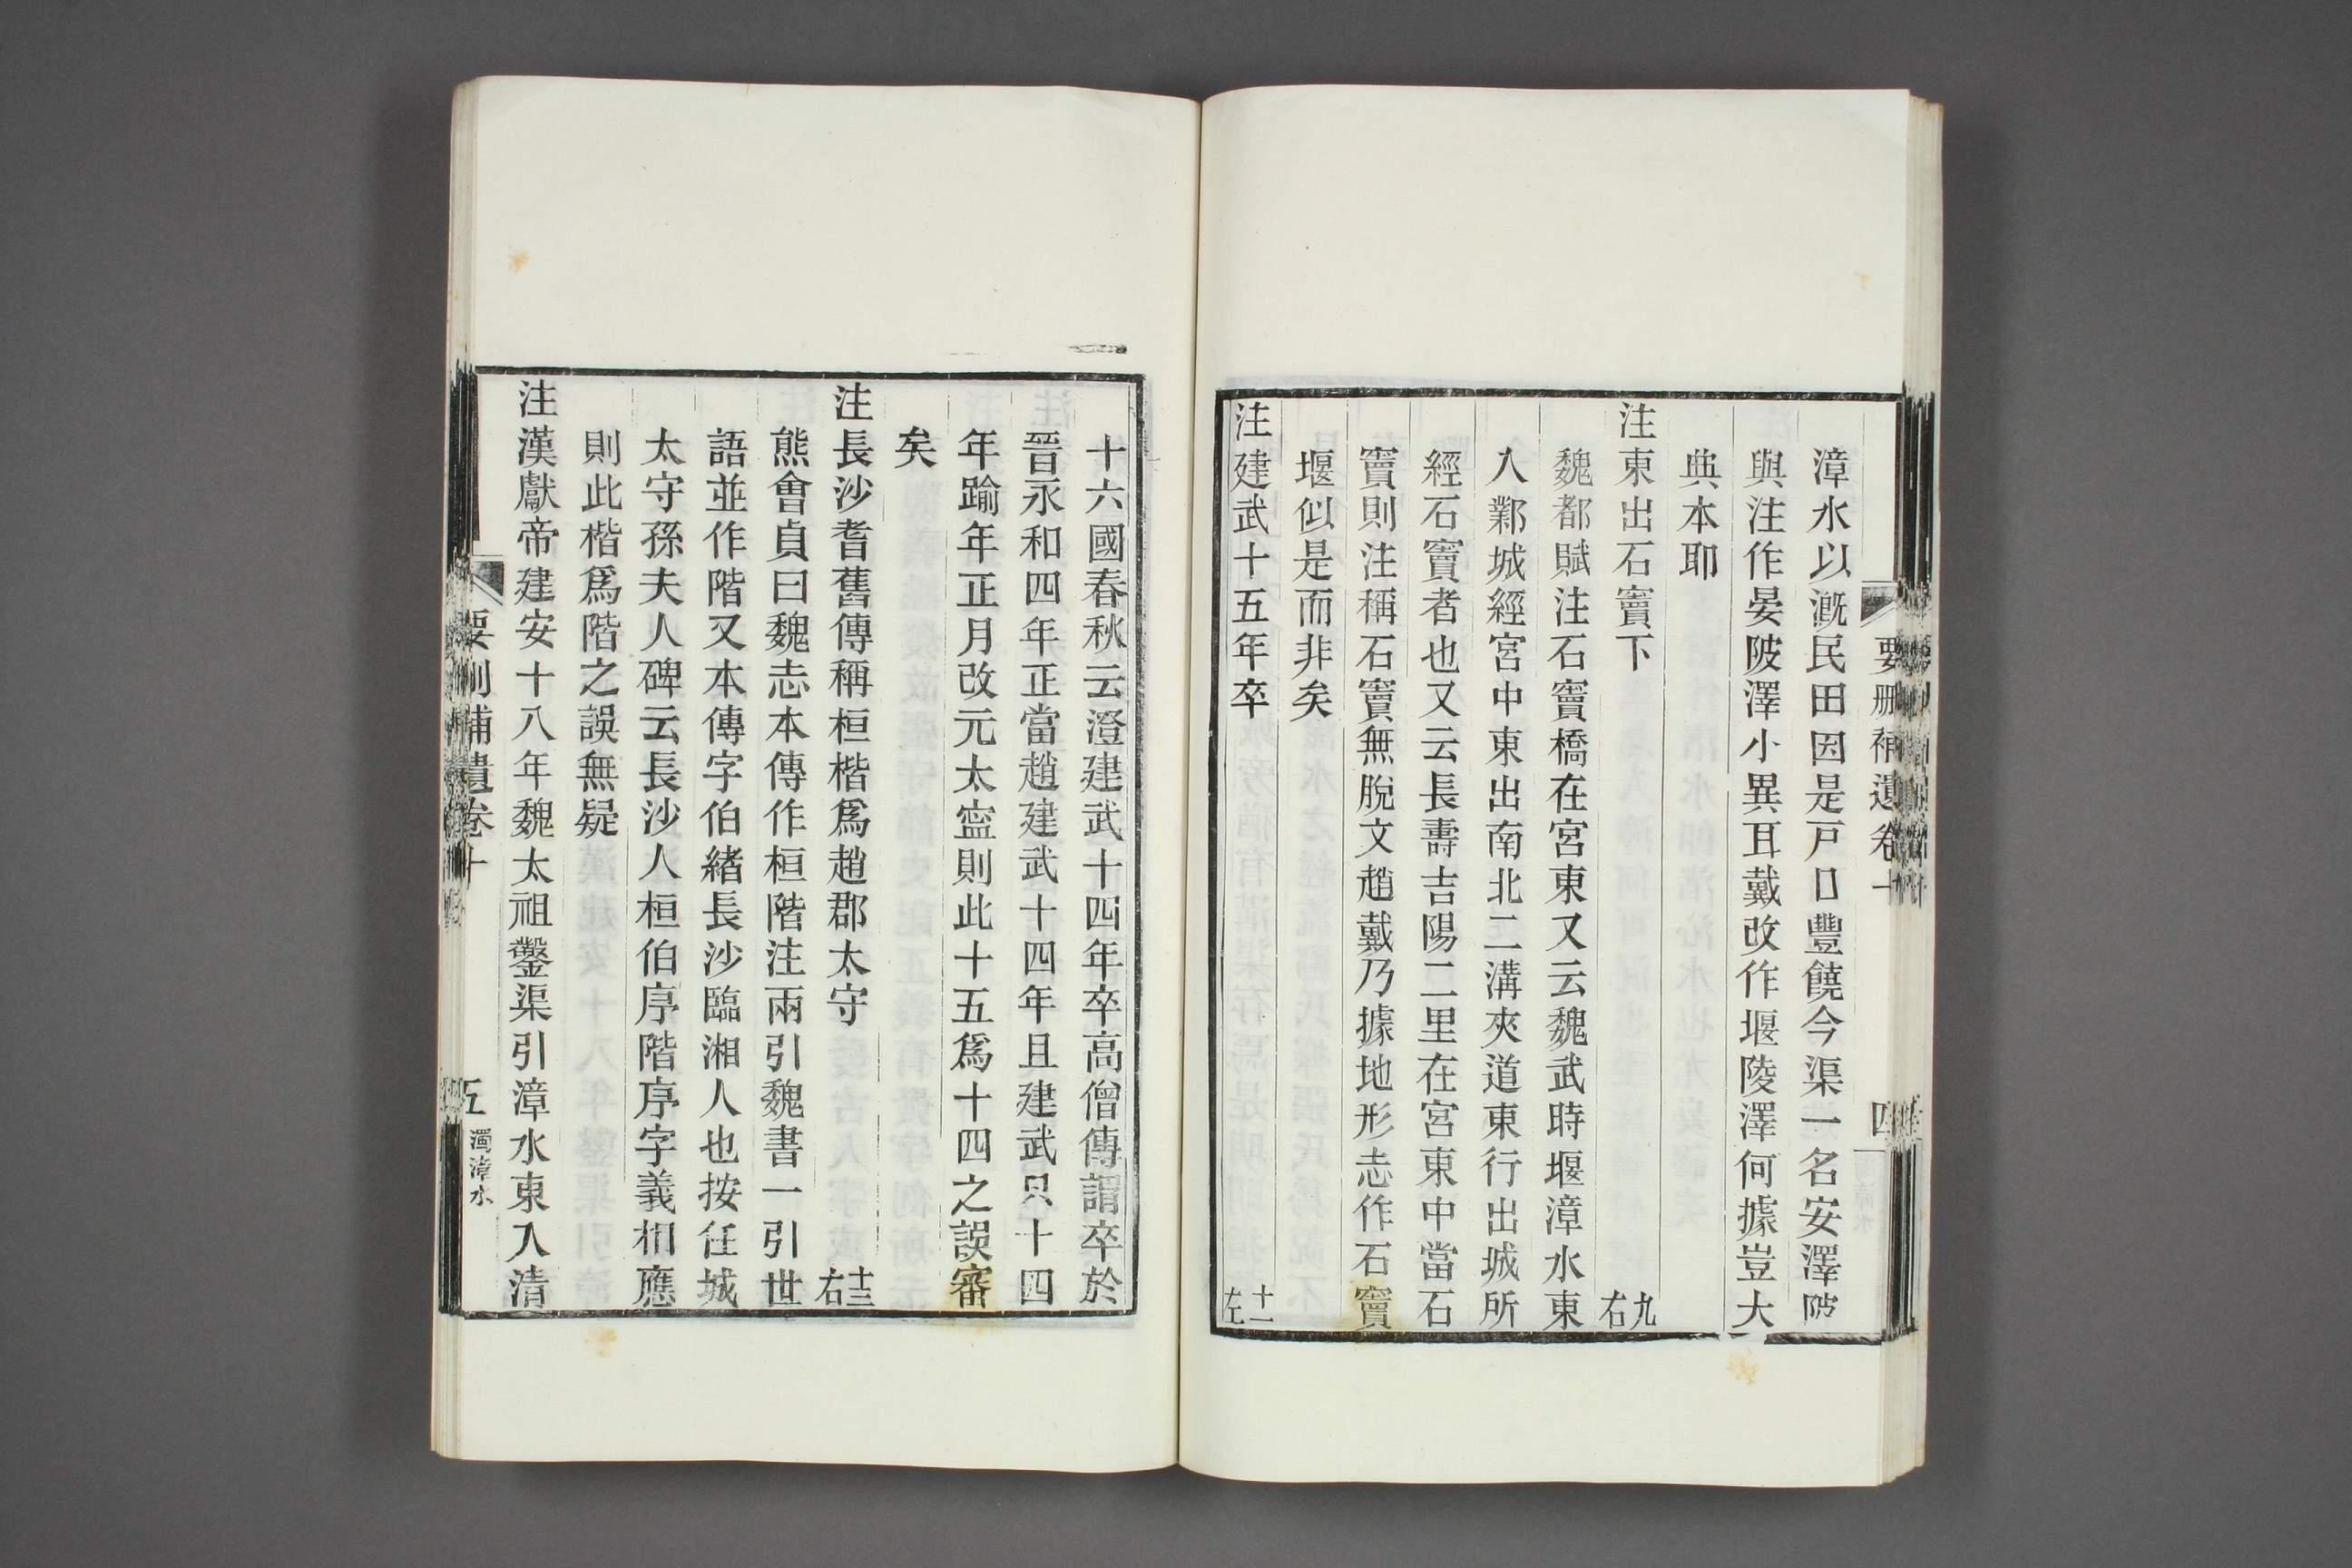 漳水以漑民田因是戸口豐饒今渠一名安澤陂
與注作晏陂澤小異耳戴改作堰陵澤何據豈大
典本耶
注東出石竇下 九右
魏都賦注石竇橋在宮東又云魏武時堰漳水東
入鄴城經宮中東出南北二溝夾道東行出城所
經石竇者也又云長壽吉陽二里在宮東中當石
竇則注稱石竇無脫文趙戴乃據地形志作石竇
堰似是而非矣
注建武十五年卒 十一左
要刪補遺卷十 四
十六國春秋云澄建武十四年卒高僧傳謂卒於
晉永和四年正當趙建武十四年且建武只十四
年踰年正月改元太寍則此十五爲十四之誤審
矣
注長沙耆舊傳稱桓楷爲趙郡太守 十三右
熊會貞曰魏志本傳作桓階注兩引魏書一引世
語並作階又本傳字伯緒長沙臨湘人也按任城
太守孫夫人碑云長沙人桓伯序階序字義相應
則此楷爲階之誤無疑
注漢獻帝建安十八年魏太祖鑿渠引漳水東入清
要刪補遺卷十 五 濁漳水